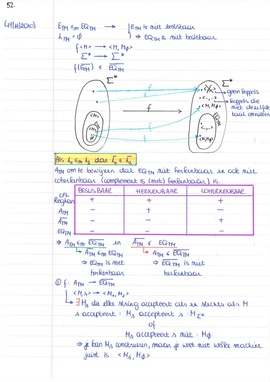 52.
E_TM ≤m EQ_TM → { E_TM is niet beslisbaar
L_TM = ∅ ⇒ EQ_TM is niet beslisbaar
f <M> → <M, M∅>
Σ* → Σ*
Σ* f Σ*
geen koppels
<M, M∅>
koppels die niet dezelfde taal omvatten
EQ_TM
f
Als L₁ ≤m L₂ dan L̅₁ ≤ L̅₂
A_TM om te bewijzen dat EQ_TM niet herkenbaar is ook niet
coherkenbaar (complement is (niet) herkenbaar) is.
BESLISBAAR HERKENBAAR COHERKENBAAR
Reg/CFL + + +
A_TM – + –
A̅_TM – – +
EQ_TM – – –
⇒ A_TM ≤m E̅Q̅_TM en A_TM ≤ EQ_TM
A̅_TM ≤m EQ_TM A̅_TM ≤ E̅Q̅_TM
⇒ EQ_TM is niet herkenbaar ⇒ E̅Q̅_TM is niet herkenbaar
① f: A_TM →
<M, s> → <M₁, M₂>
∃ M₁ die elke string accepteert als en slechts als M
s accepteert : M₁ accepteert s : M_Σ*
of
M₁ accepteert niet : M∅
⇒ je kan M₁ construeren, maar je weet niet welke machine
juist is : <M₁, M∅>